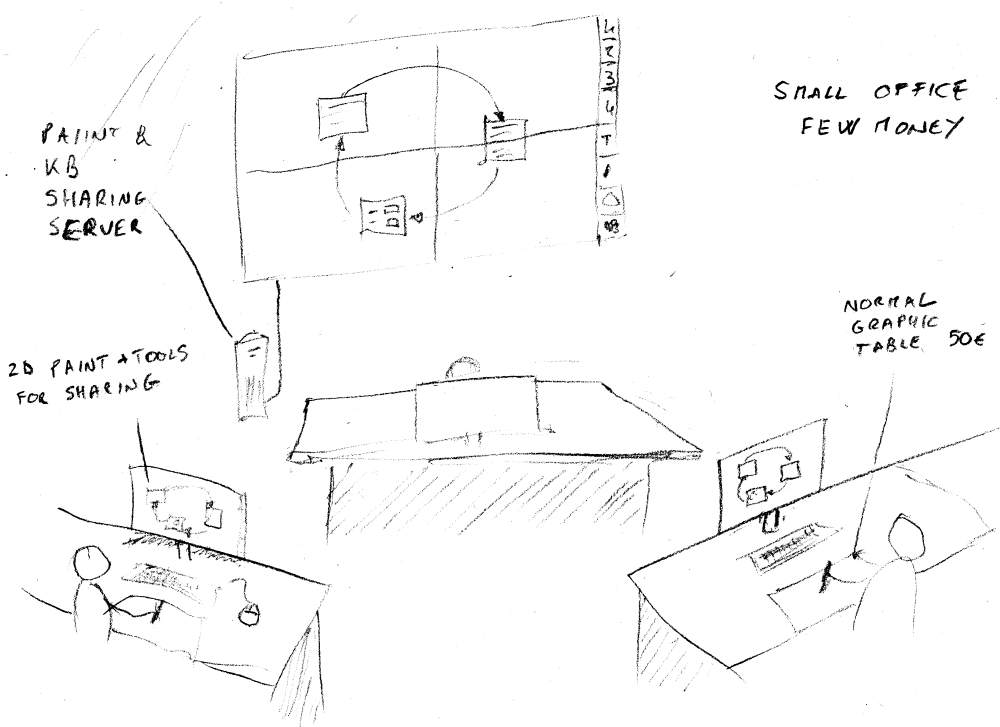 SMALL OFFICE
FEW MONEY
PAIINT &
KB
SHARING
SERVER
2D PAINT + TOOLS
FOR SHARING
NORMAL
GRAPHIC
TABLE 50€